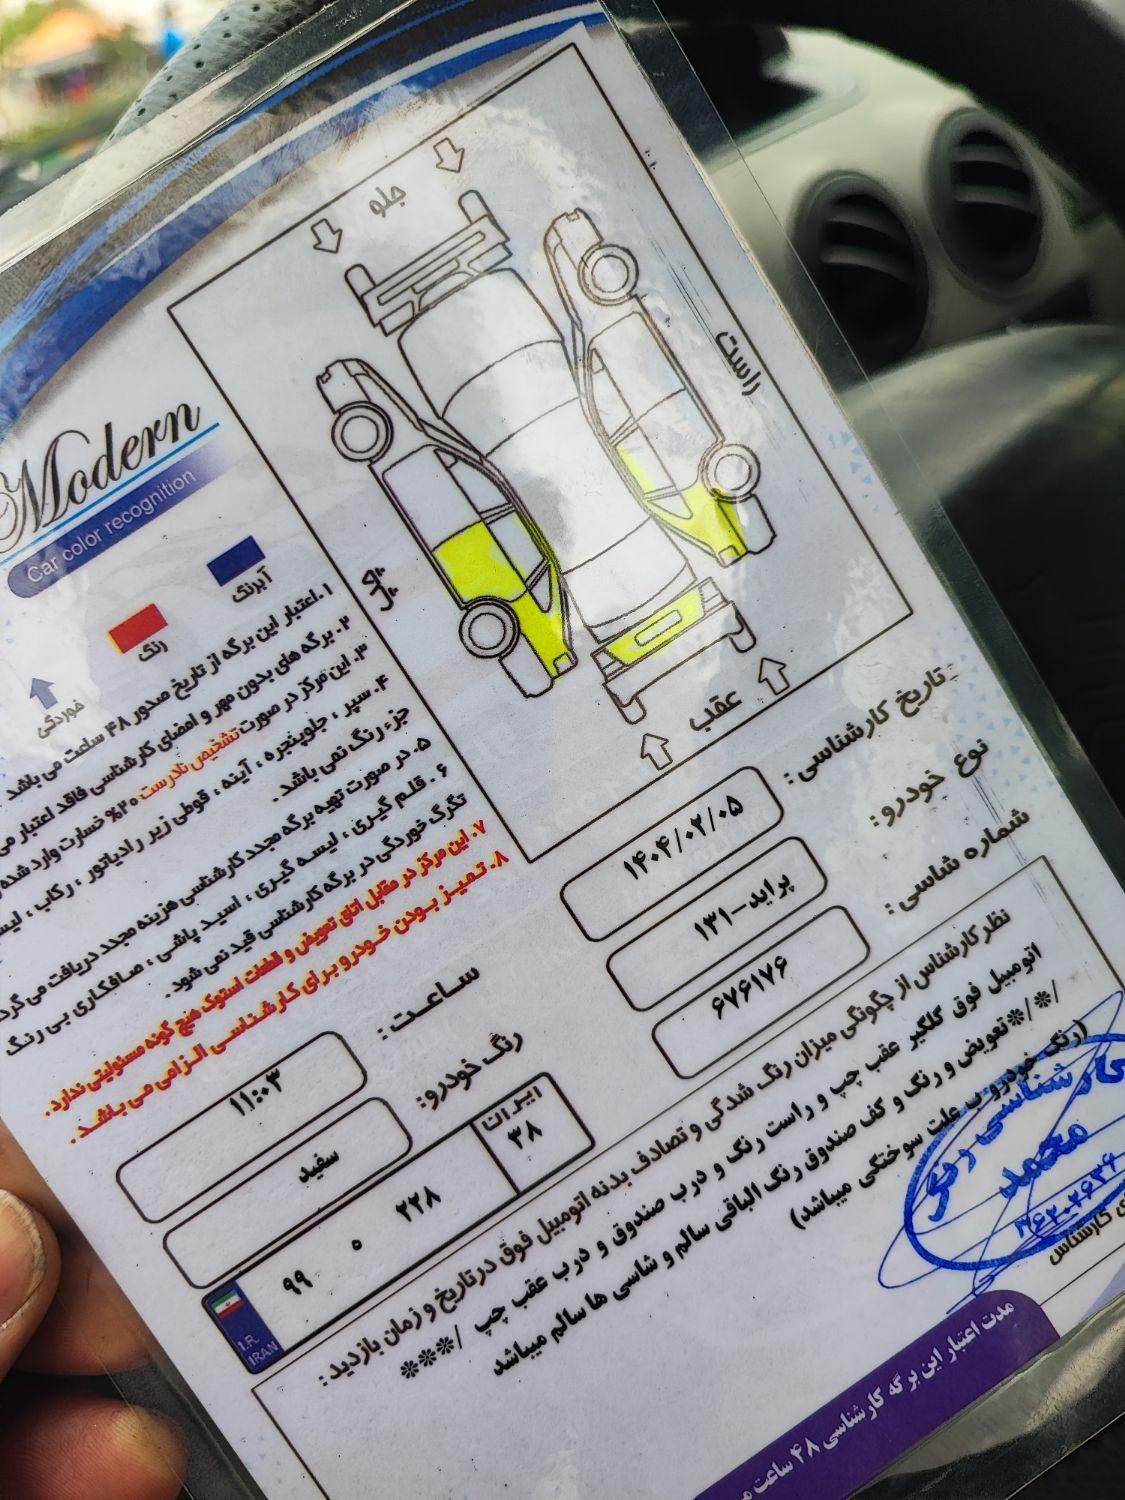 Modern
Car color recognition
آبرنگ
رنگ
خوردگی
جلو
راست
چپ
عقب
۱. اعتبار این برگه از تاریخ صدور ۴۸ ساعت می باشد
۲. برگه های بدون مهر و امضای کارشناسی فاقد اعتبار
۳. این مرکز در صورت تشخیص نادرست ۲۰% خسارت وارد شده
۴. سپر ، جلوپنجره ، آینه ، قوطی زیر رادیاتور ، رکاب ،
جزء رنگ نمی باشد .
۵. در صورت تهیه برگه مجدد کارشناسی هزینه مجدد دریافت می
۶. قلم گیری ، لیسه گیری ، اسید پاشی ، صافکاری بی رنگ
تگرگ خوردگی در برگه کارشناسی قید نمی شود .
۷. این مرکز در مقابل اتاق تعویض و قطعات استوک هیچ گونه مسئولیتی ندارد .
۸. تمیز بودن خودرو برای کارشناسی الزامی می باشد .
تاریخ کارشناسی : ۱۴۰۴/۰۲/۰۵
نوع خودرو : پراید-۱۳۱
شماره شاسی : ۶۷۶۱۷۶
ساعت : ۱۱:۰۳
رنگ خودرو : سفید
I.R. IRAN ۹۹ ه ۲۲۸ ایران ۳۸
نظر کارشناس از چگونگی میزان رنگ شدگی و تصادف بدنه اتومبیل فوق در تاریخ و زمان بازدید :
اتومبیل فوق گلگیر عقب چپ و راست رنگ و درب صندوق و درب عقب چپ /***
/*/*تعویض و رنگ و کف صندوق رنگ الباقی سالم و شاسی ها سالم میباشد
(رنگ خودرو ب علت سوختگی میباشد)
کارشناسی رنگ
محمد
کارشناس
مدت اعتبار این برگه کارشناسی ۴۸ ساعت